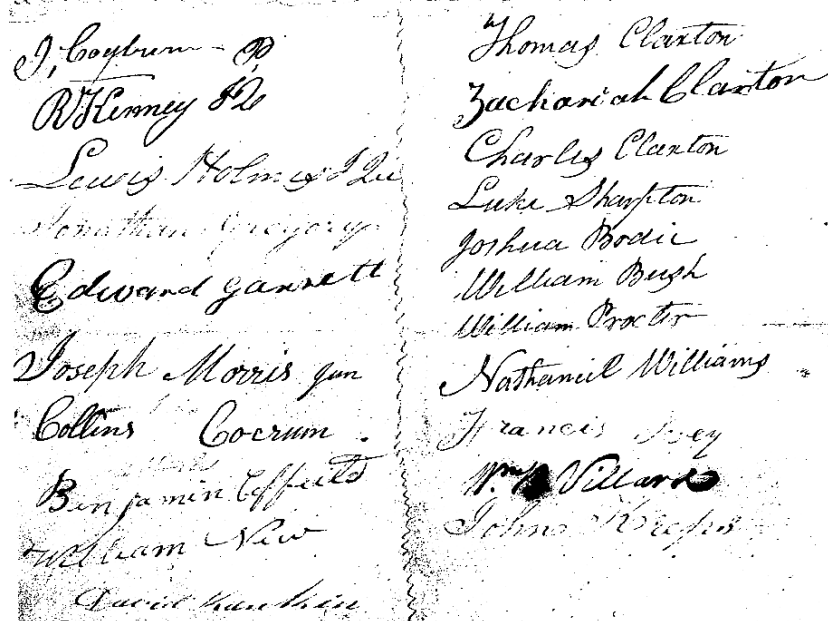 R Kenney
Lewis Holmes
Jonathan Gregory
Edward Garrett
Joseph Morris jun
Collins Cocrum.
Benjamin
William New
David
Thomas Claxton
Zachariah Claxton
Charles Claxton
Luke Sharpton
Joshua Bodie
William Bush
William Procter
Nathaniel Williams
Francis
Wm Villard
John